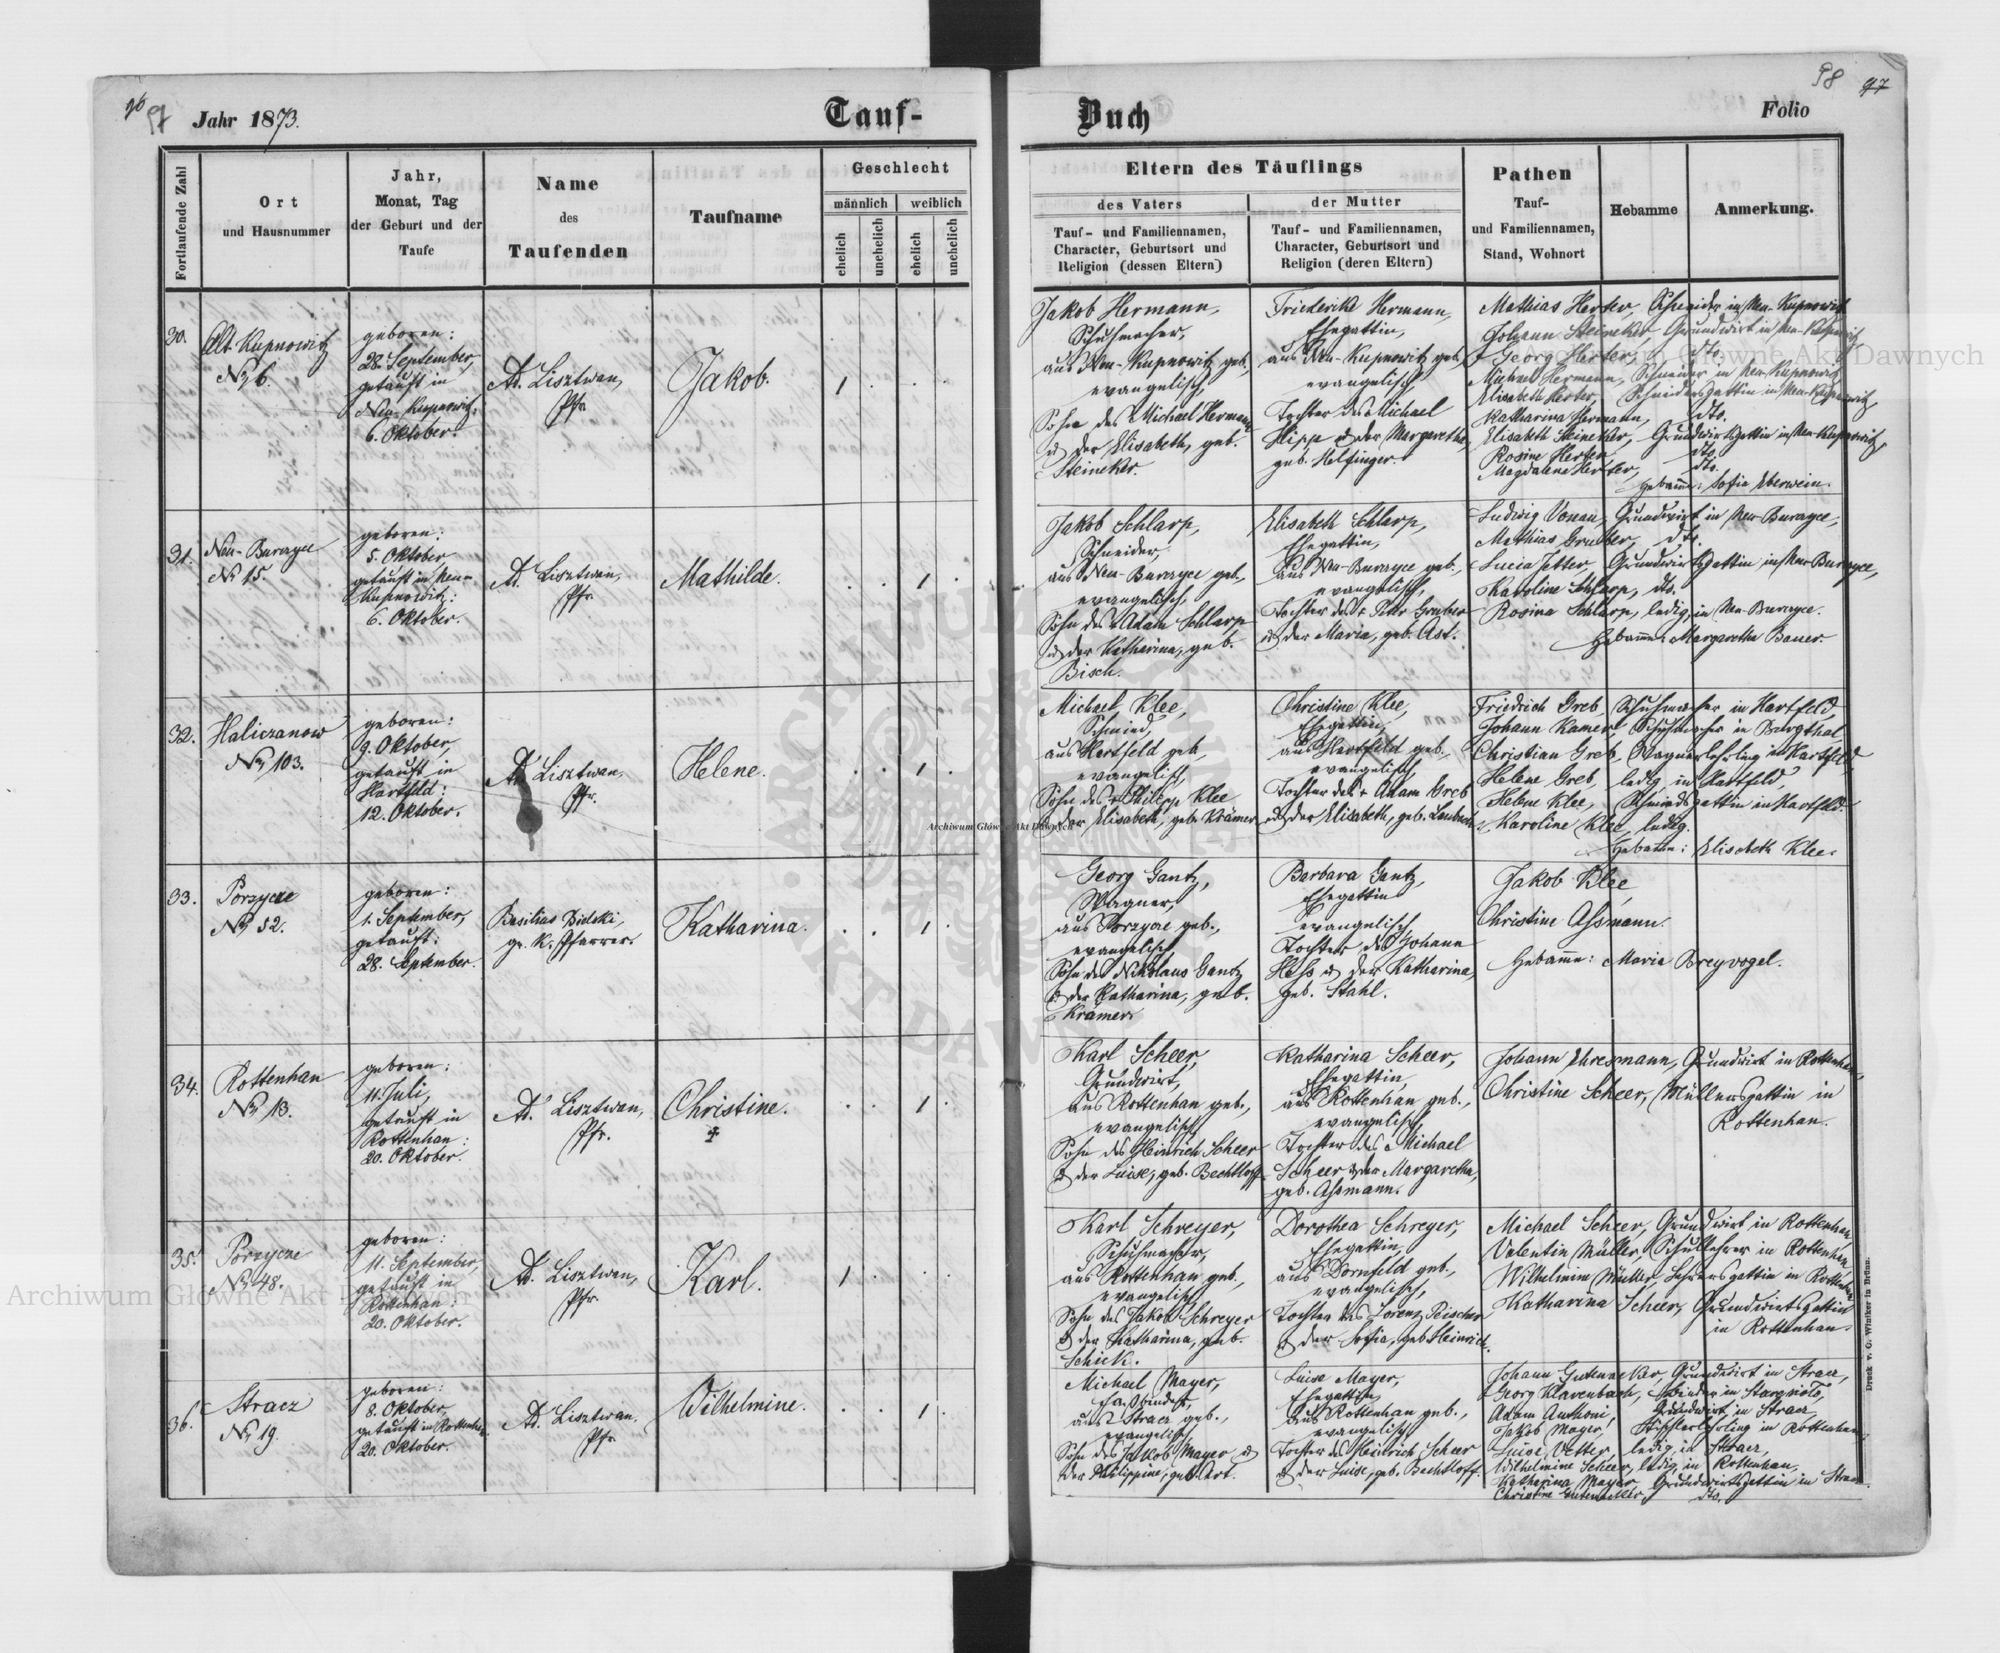 96 97 Jahr 1873.
Tauf-
Buch
98 97
Folio
Fortlaufende Zahl
Ort
und Hausnummer
Jahr,
Monat, Tag
der Geburt und der
Taufe
Name
des
Taufenden
Taufname
Geschlecht
männlich
weiblich
ehelich
unehelich
ehelich
unehelich
Eltern des Täuflings
des Vaters
Tauf- und Familiennamen,
Character, Geburtsort und
Religion (dessen Eltern)
der Mutter
Tauf- und Familiennamen,
Character, Geburtsort und
Religion (deren Eltern)
Pathen
Tauf-
und Familiennamen,
Stand, Wohnort
Hebamme
Anmerkung.
30.
Alt-Kupnowitz
No 6.
geboren:
28. September,
getauft in
Neu-Kupnowitz:
6. Oktober.
Ad. Lisztwan,
Pfr.
Jakob.
1 . . .
Jakob Hermann,
Schuhmacher,
aus Neu-Kupnowitz geb.,
evangelisch,
Sohn des Michael Hermann
u der Elisabeth, geb.
Steineker.
Friederike Hermann,
Ehegattin,
aus Neu-Kupnowitz geb.,
evangelisch,
Tochter des Michael
Hipp u der Margaretha,
geb. Helfinger.
Mathias Herter, Schneider in Neu-Kupnowitz
Johann Steineker, Grundwirt in Neu-Kupnowitz,
Georg Herter, dto.
Michael Hermann, Schneider in Neu-Kupnowitz
Elisabeth Herter, Schneidersgattin in Neu-Kupnowitz,
Katharina Hermann, dto.
Elisabeth Steineker, Grundwirtsgattin in Neu-Kupnowitz,
Rosine Herter, dto.
Magdalene Herter, dto.
Hebamme: Sofia Eberwein.
31.
Neu-Burczyce
No 15.
geboren:
5. Oktober,
getauft in Neu-
Kupnowitz:
6. Oktober.
Ad. Lisztwan,
Pfr.
Mathilde.
. . 1 .
Jakob Schlarp,
Schneider,
aus Neu-Burczyce geb.,
evangelisch,
Sohn des Adam Schlarp
u der Katharina, geb.
Bisch.
Elisabeth Schlarp,
Ehegattin,
aus Neu-Burczyce geb.,
evangelisch,
Tochter des Petr Gruber
u der Maria, geb. Ast.
Ludwig Vonau, Grundwirt in Neu-Burczyce,
Mathias Gruber, dto.
Lucia Jetter, Grundwirtsgattin in Neu-Burczyce,
Karoline Schlarp, dto.
Rosina Schlarp, ledig, in Neu-Burczyce.
Hebamme: Margaretha Bauer
32.
Haliczanow
No 103.
geboren:
9. Oktober,
getauft in
Hartfeld:
12. Oktober.
Ad. Lisztwan,
Pfr.
Helene.
. . 1 .
Michael Klee,
Schmied,
aus Hartfeld geb.,
evangelisch,
Sohn des Philipp Klee
u der Elisabeth, geb. Krämer
Christine Klee,
Ehegattin,
aus Hartfeld geb.,
evangelisch,
Tochter des Adam Greb
u der Elisabeth, geb.
Friedrich Greb, Schuhmacher in Hartfeld,
Johann Kamer, Schuhmacher in Burgthal
Christian Greb, Wagnerlehrling in Hartfeld,
Helene Greb, ledig, in Hartfeld,
Helene Klee, Schmiedsgattin in Hartfeld.
Karoline Klee, ledig.
Hebamme: Elisabeth Klee.
33.
Porzycze
No 52.
geboren:
1. September,
getauft:
28. September.
Basilius Bielski,
gr. k. Pfarrer.
Katharina.
. . 1 .
Georg Gantz,
Wagner,
aus Porzycze geb.,
evangelisch,
Sohn des Nikolaus Gantz
u der Katharina, geb.
Krämer.
Barbara Gantz,
Ehegattin
evangelisch,
Tochter des Johann
Heß u der Katharina,
geb. Stahl.
Jakob Klee,
Christine Aßmann.
Hebamme: Maria Breyvogel.
34.
Rottenhan
No 13.
geboren:
11. Juli,
getauft in
Rottenhan:
20. Oktober.
Ad. Lisztwan,
Pfr.
Christine.
. . 1 .
Karl Scheer,
Grundwirt,
aus Rottenhan geb.,
evangelisch,
Sohn des Heinrich Scheer
u der Luise, geb. Bechtloff.
Katharina Scheer,
Ehegattin,
aus Rottenhan geb.,
evangelisch,
Tochter des Michael
Scheer u der Margaretha,
geb. Aßmann.
Johann Ehresmann, Grundwirt in Rottenhan,
Christine Scheer, Müllersgattin in
Rottenhan.
35.
Porzycze
No 48.
geboren:
11. September,
getauft in
Rottenhan:
20. Oktober.
Ad. Lisztwan,
Pfr.
Karl.
1 . . .
Karl Schreyer,
Schuhmacher,
aus Rottenhan geb.,
evangelisch,
Sohn des Jakob Schreyer
u der Katharina, geb.
Schick.
Dorothea Schreyer,
Ehegattin,
aus Dornfeld geb.,
evangelisch,
Tochter des Lorenz Reischer
u der Sofia, geb. Heinrich.
Michael Scheer, Grundwirt in Rottenhan,
Valentin Müller, Schullehrer in Rottenhan,
Wilhelmine Müller, Lehrersgattin in Rottenhan
Katharina Scheer, Grundwirtsgattin
in Rottenhan.
36.
Stracz
No 19.
geboren:
8. Oktober,
getauft in Rottenhan
20. Oktober.
Ad. Lisztwan,
Pfr.
Wilhelmine.
. . 1 .
Michael Mayer,
Faßbinder,
aus Stracz geb.,
evangelisch,
Sohn des Jakob Mayer u
der Philippine, geb. Art.
Luise Mayer,
Ehegattin,
aus Rottenhan geb.,
evangelisch,
Tochter des Heinrich Scheer
u der Luise, geb. Bechtloff.
Johann Gutenacker, Grundwirt in Stracz,
Georg Klarenbach, Binder in
Adam Anthoni, Grundwirt in Stracz
Jakob Mayer, Tischlerlehrling in Rottenhan,
Luise Vetter, ledig, in Stracz,
Wilhelmine Scheer, ledig, in Rottenhan,
Katharina Mayer, Grundwirtsgattin in Stracz
Christine Gutenacker, dto.
Druck v. C. Winiker in Brünn.
Archiwum Główne Akt Dawnych
Archiwum Główne Akt Dawnych
Archiwum Główne Akt Dawnych